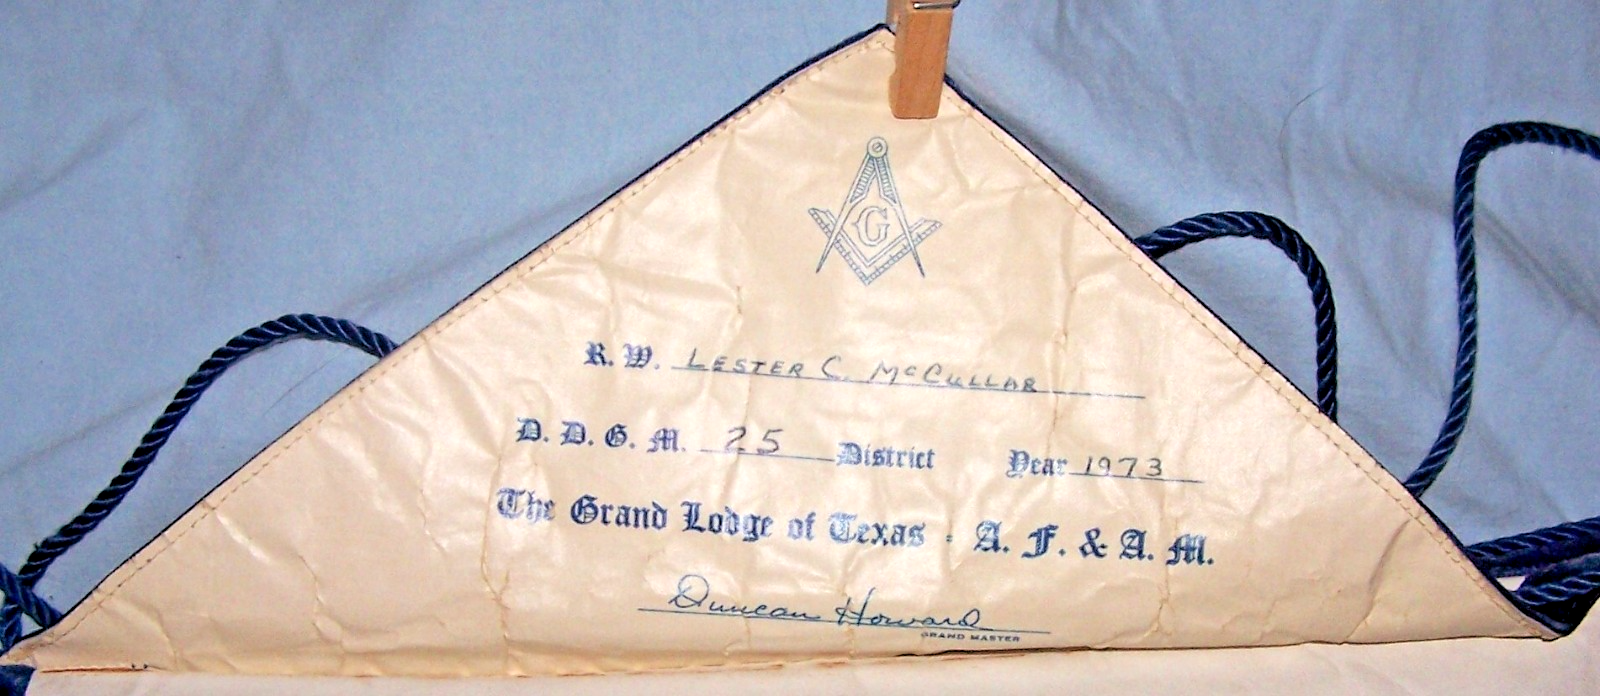 G
R. W. LESTER C. McCULLAR
D. D. G. M. 25 District Year 1973
The Grand Lodge of Texas - A. F. & A. M.
Duncan Howard
GRAND MASTER